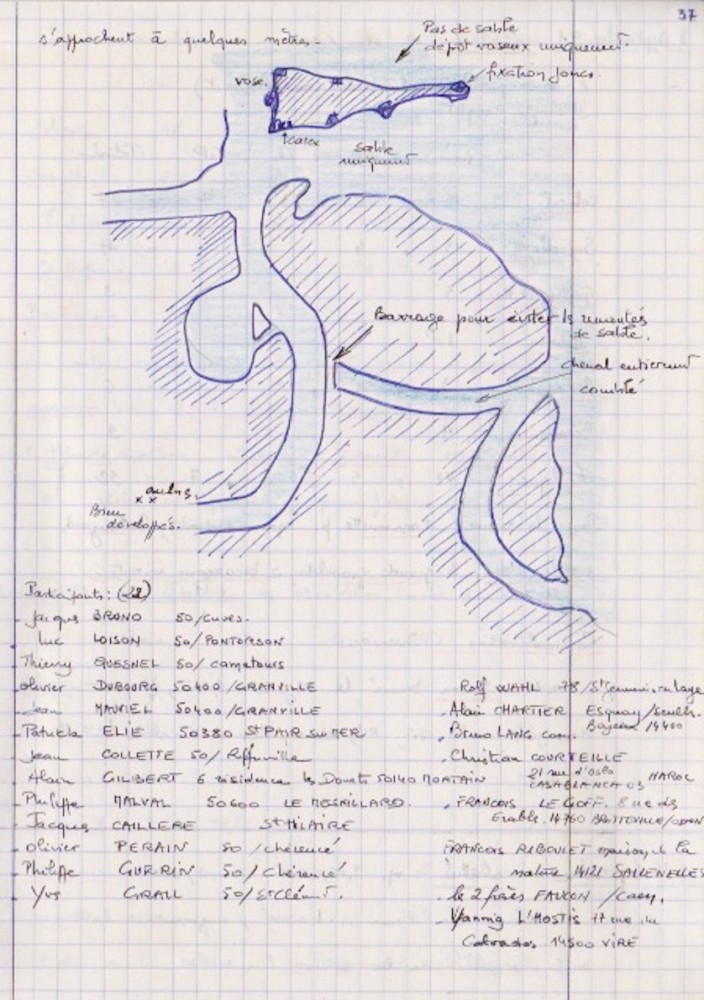 37
s'approchent à quelques mètres.
Pas de sable
dépôt vaseux uniquement.
fixation joncs.
vase.
carex
sable
uniquement
Barrage pour éviter les remontés
de sable.
chenal entièrement
comblé
aulnes.
x x
Bien
développés.
Participants : (22)
Jacques BRANO 50/Cuves.
Luc LOISON 50/PONTORSON
Thierry QUESNEL 50/ Cametours
Olivier DUBOURG 50400/GRANVILLE
Jean MAURIEL 50400/GRANVILLE
Patricia ELIE 50380 St PAIR sur MER
Jean COLLETTE 50/ Reffuveille
Alain GILIBERT 6 résidence les Douets 50140 MORTAIN
Philippe MALVAL 50600 LE MESNILLARD.
Jacques CAILLERE St HILAIRE
Olivier PERAIN 50 / Chérencé
Philippe GUERRIN 50/ Chérencé
Yves GRALL 50/St Clément.
Rolf WAHL 78/St Germain en laye
Alain CHARTIER Esquay/seulles.
Bayeux 14400
Bruno LANG Caen.
Christian COURTEILLE
21 rue d'Oslo MAROC
CASABLANCA 03
FRANCOIS LE GOFF. 8 rue des
Erables. 14760 BRETTEVILLE/ODON
FRANCOIS RIBOULET maison de la
nature 14121 SALLENELLES
les 2 frères FAUCON /Caen.
Yannig L'HOSTIS 17 rue du
Calvados 14500 VIRE